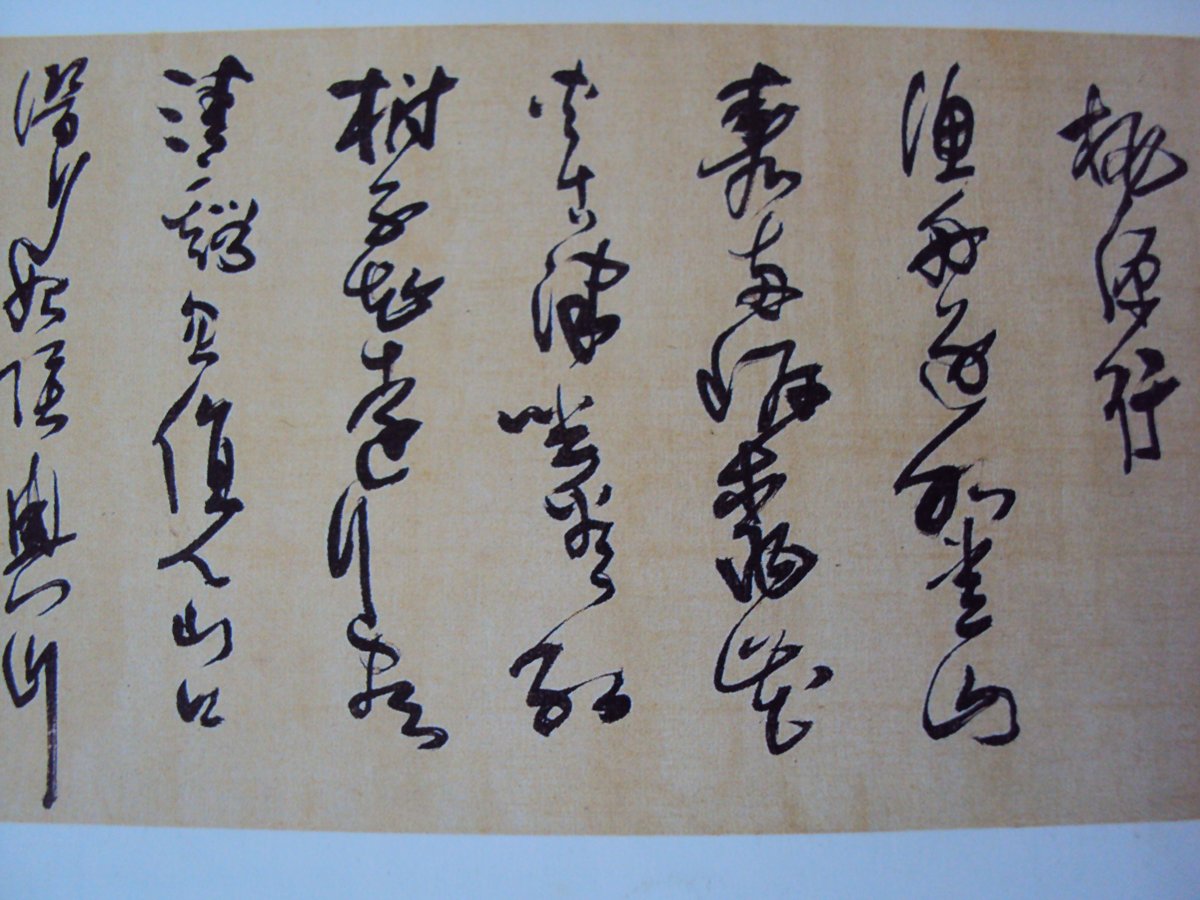 桃源行
漁舟逐水愛山
春兩岸桃花
夾古津坐看紅
樹不知遠行盡
清谿忽值人山口
潛行始隈奧